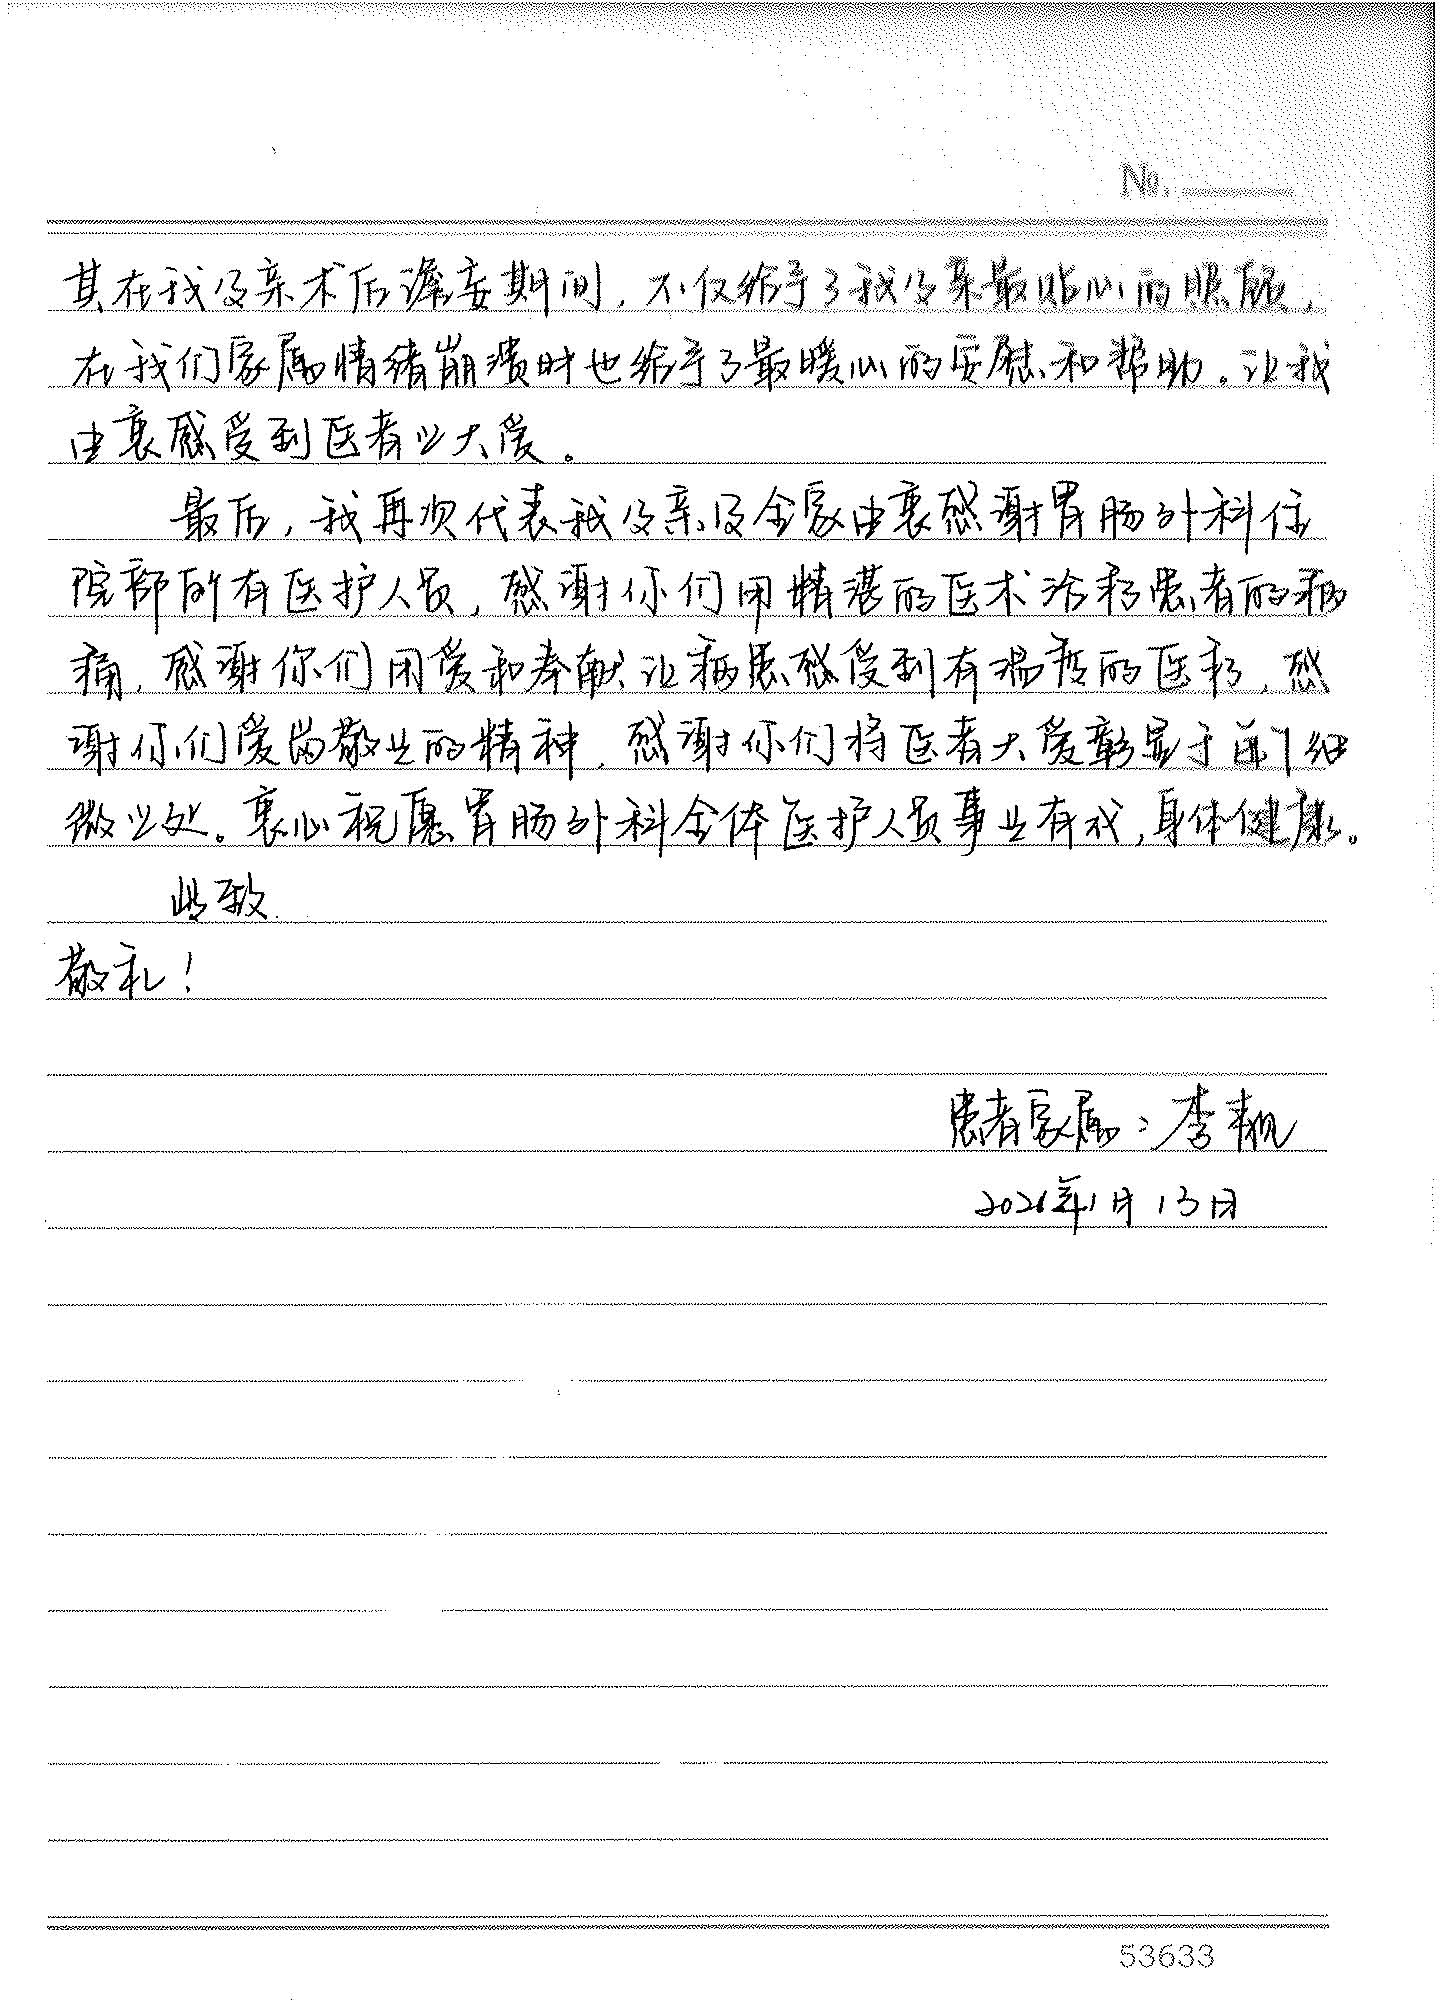 No.
其在我父亲术后谵妄期间，不仅给予了我父亲最贴心的照顾，
在我们家属情绪崩溃时也给予了最暖心的安慰和帮助。让我
由衷感受到医者之大爱。
最后，我再次代表我父亲及全家由衷感谢胃肠外科住
院部所有医护人员，感谢你们用精湛的医术治疗患者的病
痛，感谢你们用爱和奉献让病患感受到有温度的医疗，感
谢你们爱岗敬业的精神，感谢你们将医者大爱彰显于每个细
微之处。衷心祝愿胃肠外科全体医护人员事业有成，身体健康。
此致
敬礼！
患者家属：李
2026年1月13日
53633